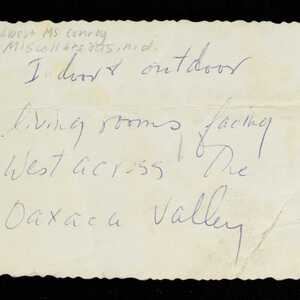 Miscellaneous, n.d.
Indoor & outdoor
living rooms facing
West across The
Oaxaca Valley